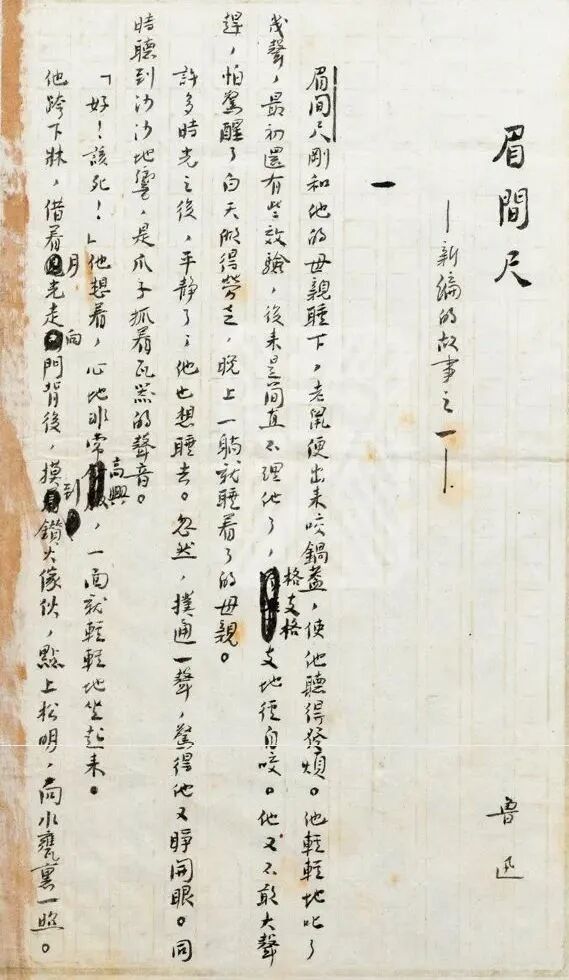 眉間尺
—新編的故事之一—
魯迅
一
眉間尺剛和他的母親睡下,老鼠便出來咬鍋蓋,使他聽得發煩。他輕輕地叱了
幾聲,最初還有些效驗,後來是簡直不理他了,格支格支地徑自咬。他又不敢大聲
趕,怕驚醒了白天做得勞乏,晚上一躺就睡着了的母親。
許多時光之後,平靜了;他也想睡去。忽然,撲通一聲,驚得他又睜開眼。同
時聽到沙沙地響,是爪子抓着瓦器的聲音。
「好!該死!」他想着,心地非常高興,一面就輕輕地坐起來。
他跨下牀,借着月光走向門背後,摸到鑽火傢伙,點上松明,向水甕裏一照。